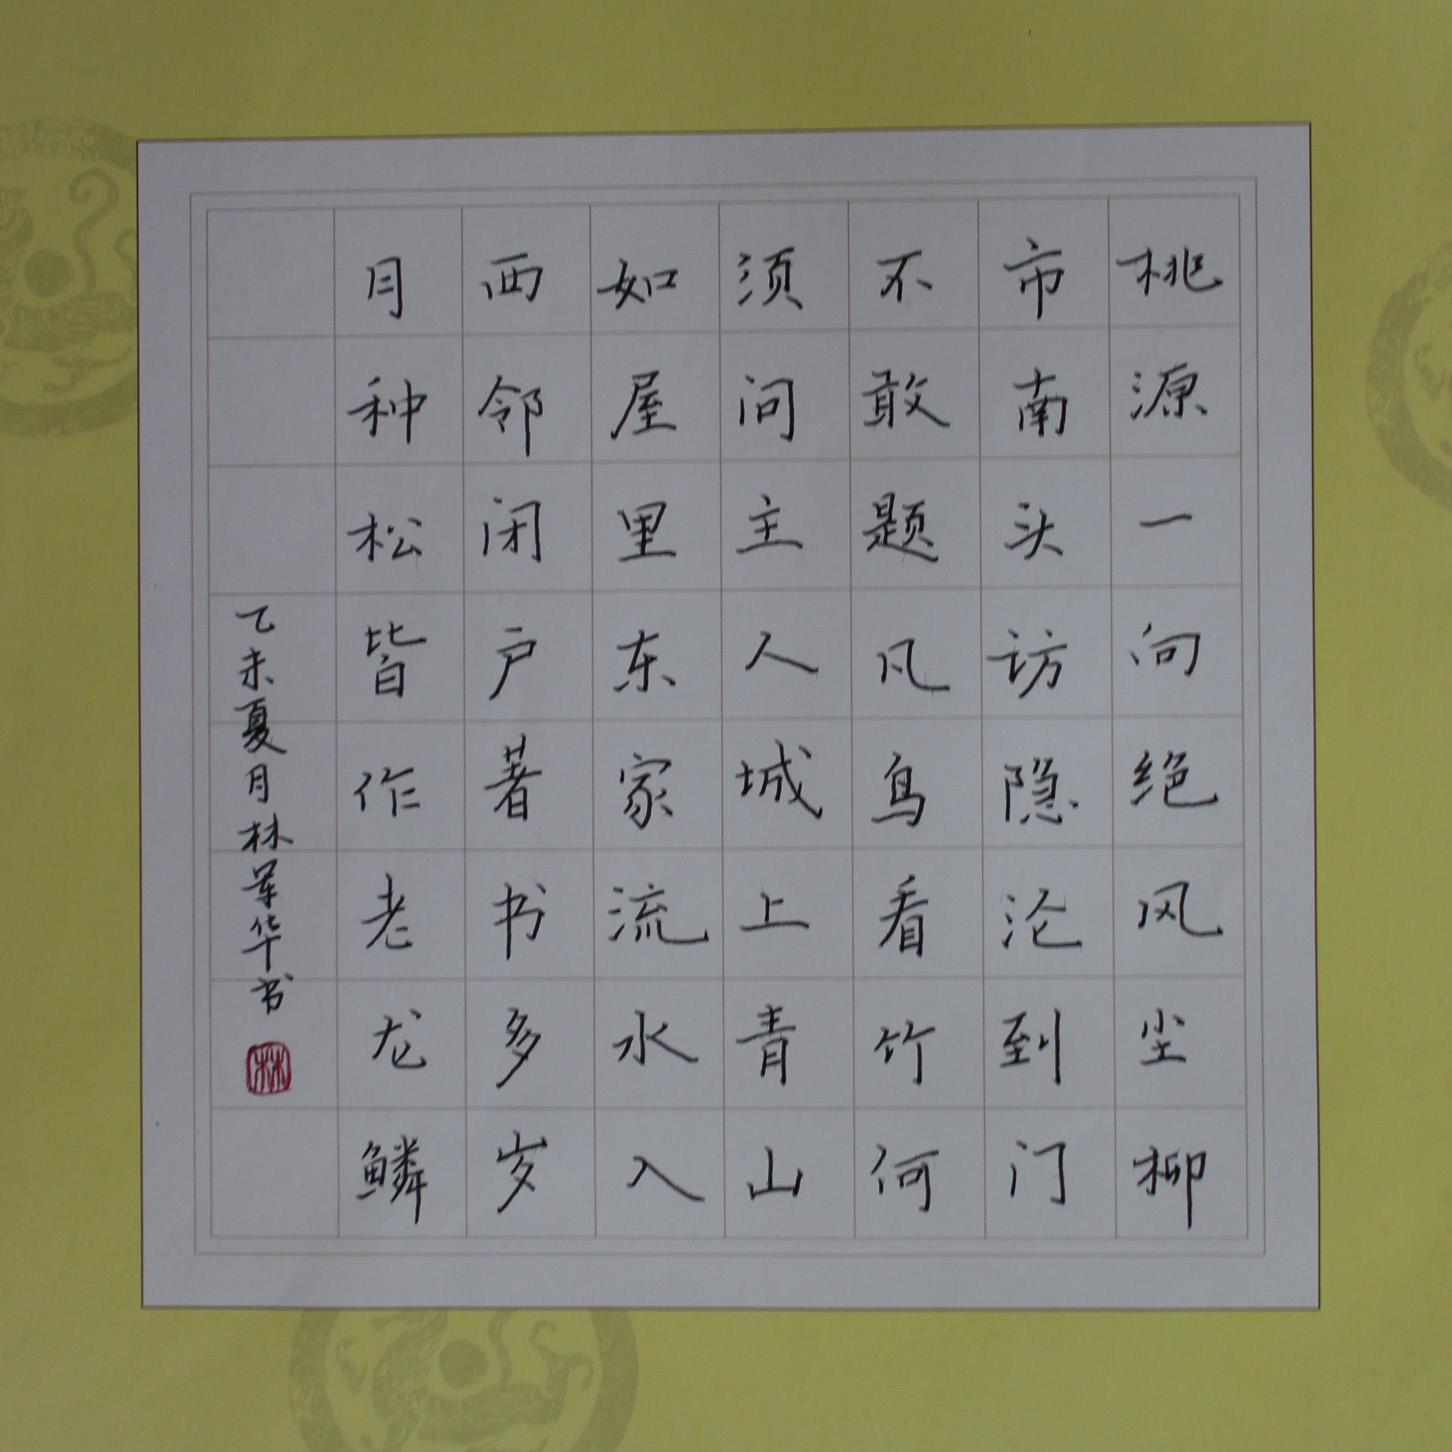 桃源一向绝风尘柳
市南头访隐沦到门
不敢题凡鸟看竹何
须问主人城上青山
如屋里东家流水入
西邻闭户著书多岁
月种松皆作老龙鳞
乙未夏月林军华书
林